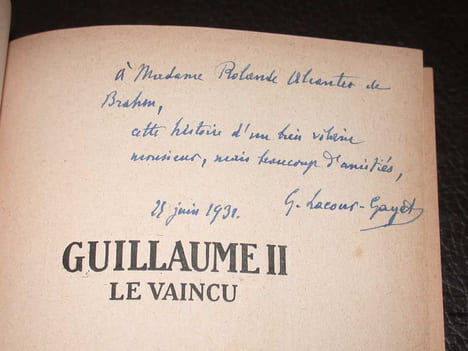 à Madame Rolande Alcanter de
Brahm,
cette histoire d'un bien vilain
monsieur, mais beaucoup d'amitiés,
G. Lacour-Gayet
25 juin 1931.
GUILLAUME II
LE VAINCU